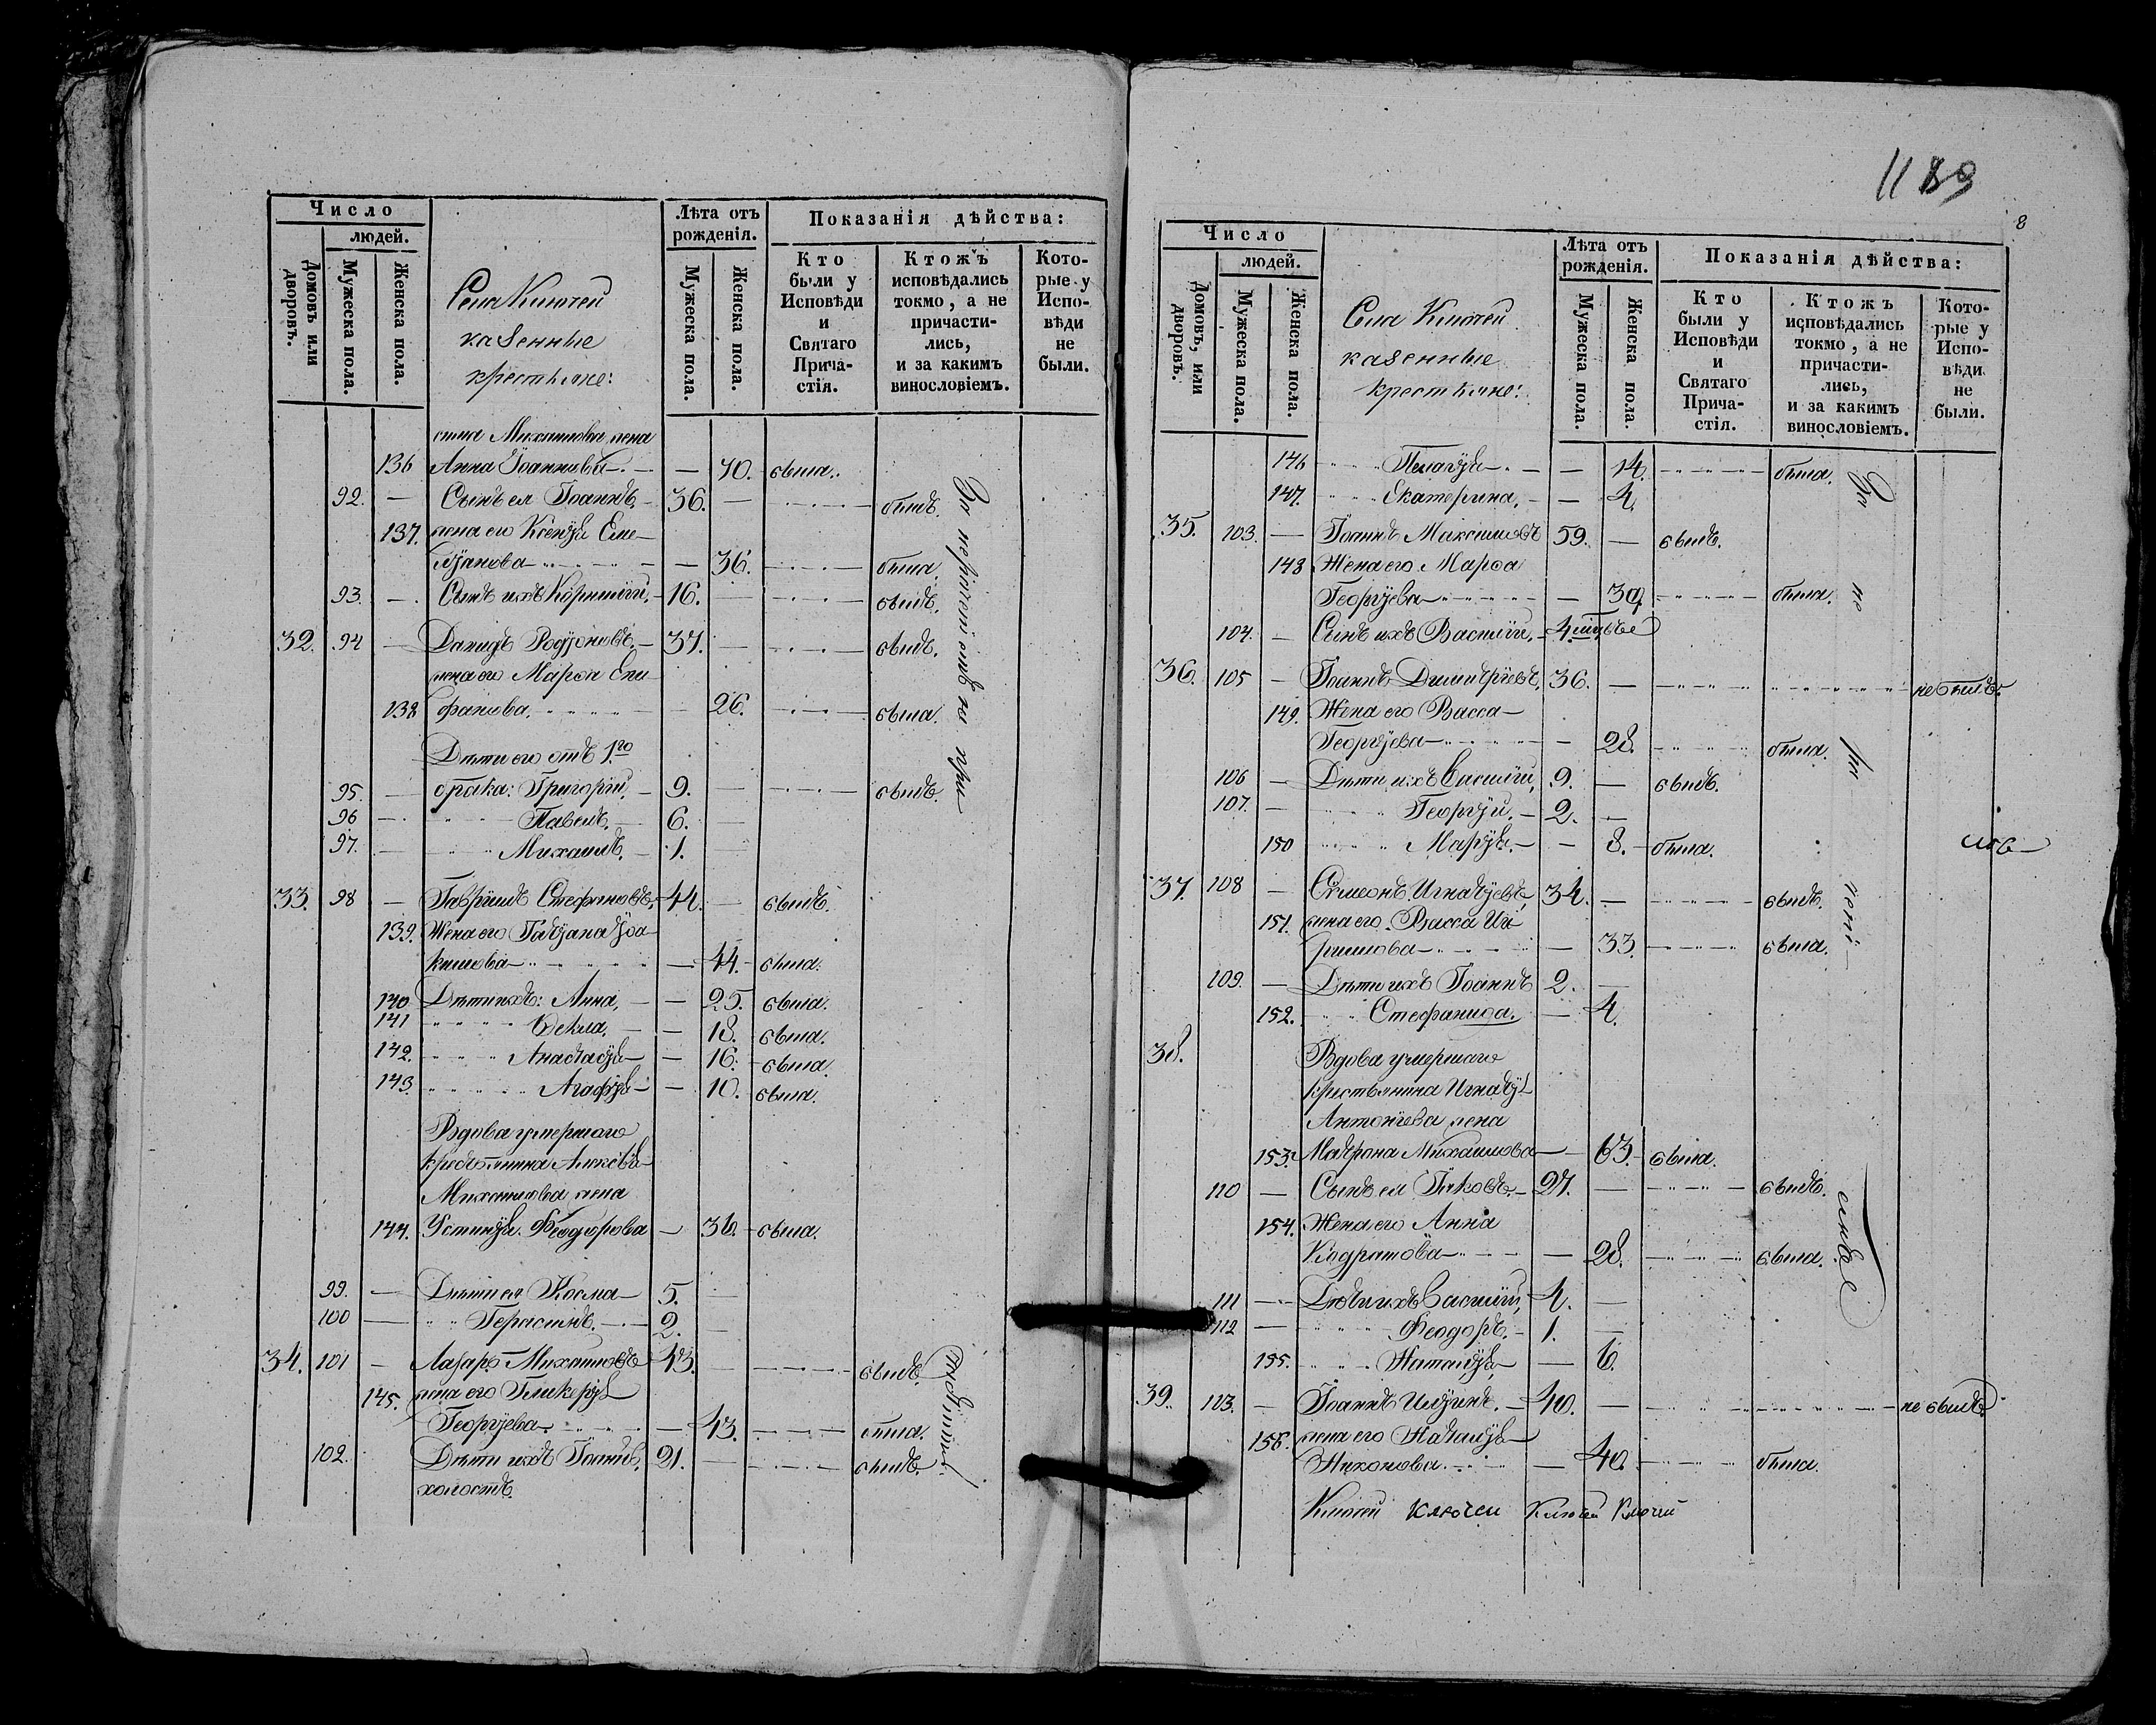 Число
людей.
Домовъ или дворовъ.
Мужеска пола.
Женска пола.
Села Ключей
казенные
крестьяне:
Лѣта отъ рожденія.
Мужеска пола.
Женска пола.
Показанія дѣйства:
Кто были у Исповѣди и Святаго Прича-стія.
Ктожъ исповѣдались токмо, а не причасти-лись, и за какимъ винословіемъ.
Кото-рые у Испо-вѣди не были.
Михаилова жена
136 Анна Іоаннова — 70. была.
92. — Сынъ ея Іоаннъ, 36. — былъ.
137. жена его Ксенія Еме-
ліанова — 36. была.
93. — Сынъ ихъ Корнилій, 16. — былъ.
32. 94 — Давидъ Родіоновъ, 37. — былъ.
жена его Марѳа Епи
138 фанова, — 26. была.
Дѣти его отъ 1го
95. — брака: Григорій, 9. — былъ.
96 — Павелъ, 6. —
97. — Михаилъ, 1. —
33. 98 — Гавріилъ Стефановъ, 44. — былъ.
139. Жена его Татіана Іоа
кимова — 44. была.
140 Дѣти ихъ: Анна, — 25. была.
141 Ѳекла, — 18. была.
142. Анастасія — 16. была.
143. Агафія — 10. была.
Вдова умершаго
крестьянина Алексѣя
Михаилова жена
144. Устинія Феодорова — 36. была.
99. — Дѣти ея Косма — 5. —
100 — Герасимъ, 2. —
34. 101 — Лазарь Михаиловъ 43. — былъ.
145. жена его Гликерія
Георгіева — 43. была.
102. Дѣти ихъ Іоаннъ, 21. — былъ.
холостъ.
1189
8
Число
людей.
Домовъ, или дворовъ.
Мужеска пола.
Женска пола.
Села Ключей
казенные
крестьяне:
Лѣта отъ рожденія.
Мужеска пола.
Женска пола.
Показанія дѣйства:
Кто были у Исповѣди и Святаго Прича-стія.
Ктожъ исповѣдались токмо, а не причасти-лись, и за какимъ винословіемъ.
Кото-рые у Испо-вѣди не были.
146 Пелагія — 14. была.
147. Екатерина, — 4.
35. 103. — Іоаннъ Максимовъ 59. — былъ.
148 Жена его Марѳа
Георгіева — 39 была.
104. — Сынъ ихъ Василій, 4.
36. 105 — Іоаннъ Димитріевъ, 36. — не былъ.
149. Жена его Васса
Георгіева — 28. была.
106 — Дѣти ихъ Василій, 9. — былъ.
107. — Георгій, 2. —
150 Марія — 8. была.
37. 108 — Симеонъ Игнатіевъ, 34. — былъ.
151. жена его Васса
— 33. была.
109. — Дѣти ихъ Іоаннъ 2. —
152. Стефанида. — 4.
38. Вдова умершаго
крестьянина Игнатія
Антоніева жена
153. Матрона Михаилова — 63. была.
110 — Сынъ ея Іаковъ, 27. — былъ.
154. Жена его Анна
Кодратова — 28. была.
111 — Дѣти ихъ Василій, 4. —
112 — Феодоръ, 1. —
155. Наталія, — 6.
39. 113. — Іоаннъ 40. — не былъ.
156. жена его Наталія
Никонова — 40. была.
Ключей Ключеи Ключей Ключей